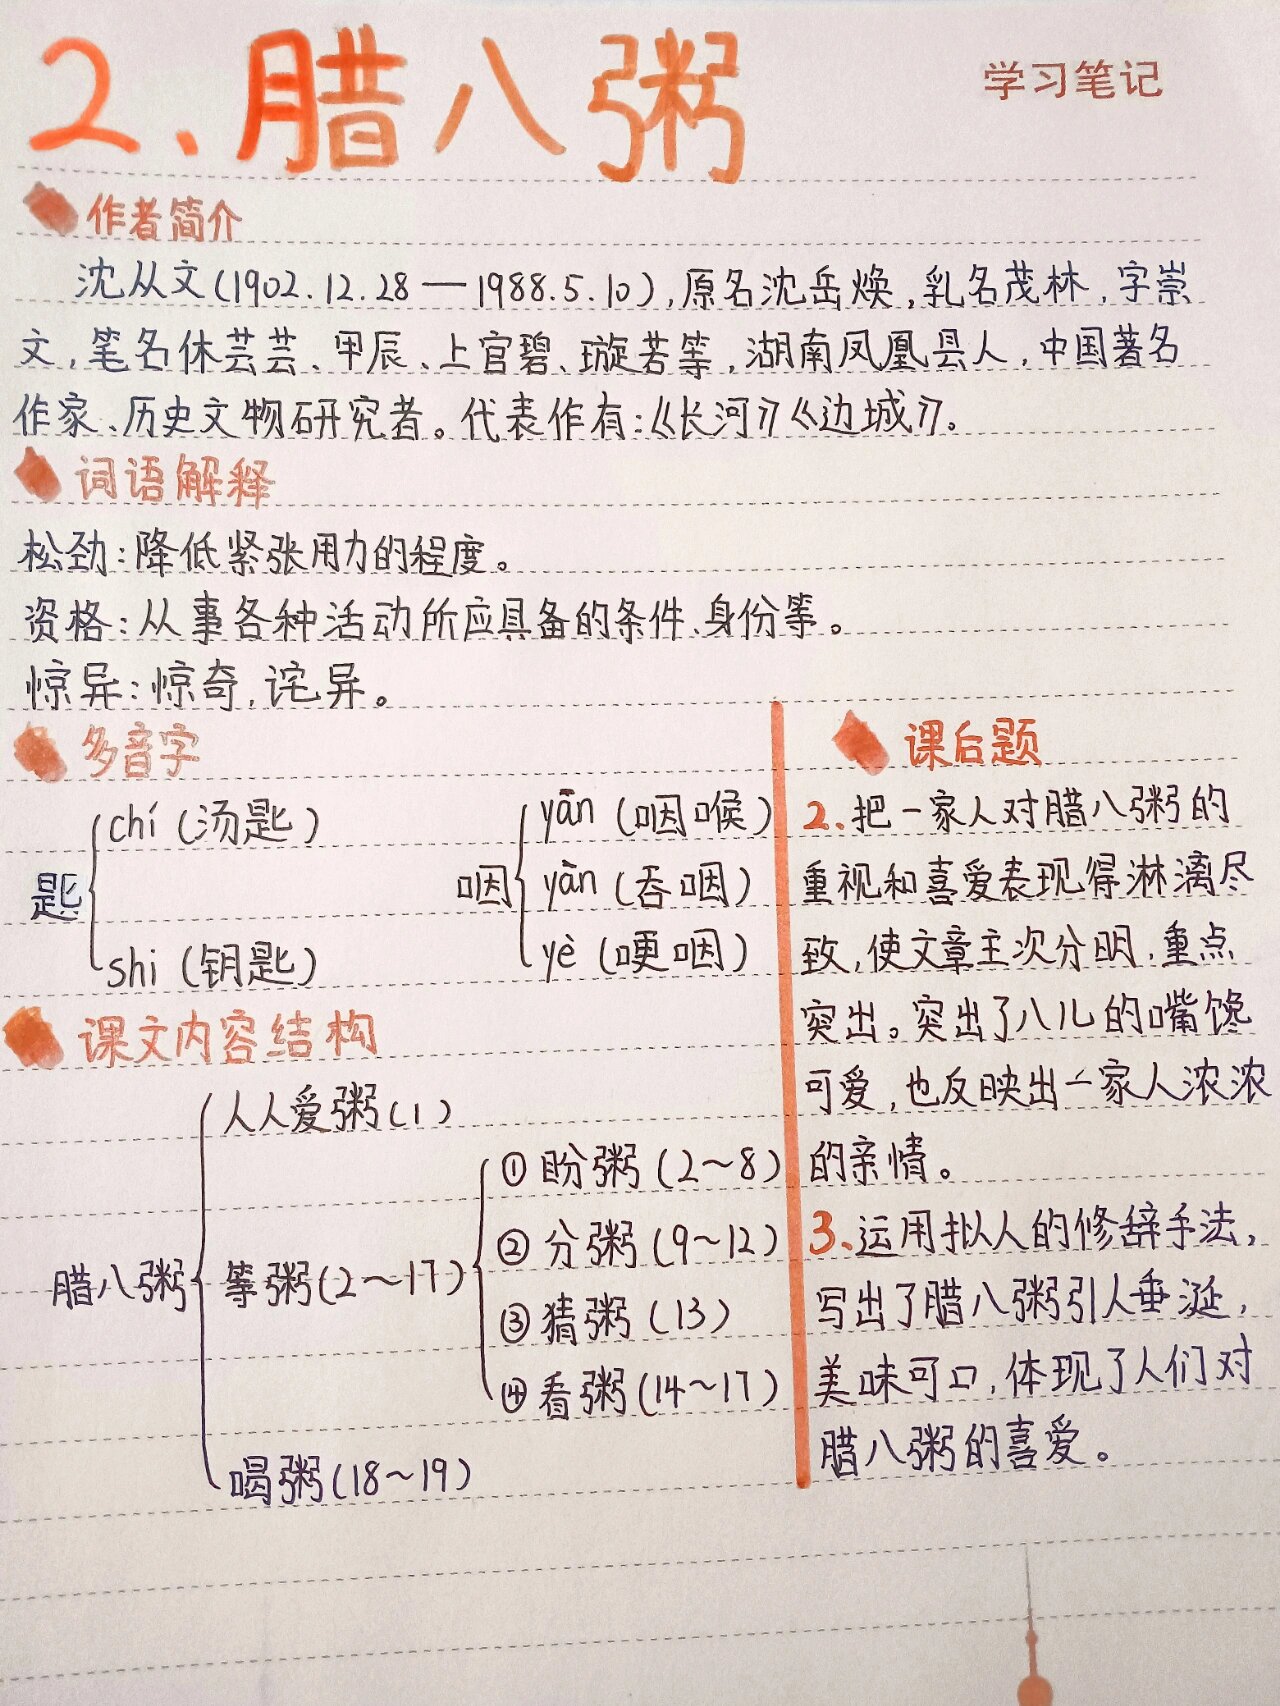 2、腊八粥
学习笔记
作者简介
沈从文(1902.12.28—1988.5.10),原名沈岳焕,乳名茂林,字崇
文,笔名休芸芸、甲辰、上官碧、璇若等,湖南凤凰县人,中国著名
作家、历史文物研究者。代表作有:《长河》《边城》。
词语解释
松劲:降低紧张用力的程度。
资格:从事各种活动所应具备的条件、身份等。
惊异:惊奇,诧异。
多音字
匙
chí(汤匙)
shi(钥匙)
咽
yān(咽喉)
yàn(吞咽)
yè(哽咽)
课文内容结构
腊八粥
人人爱粥(1)
等粥(2~17)
①盼粥(2~8)
②分粥(9~12)
③猜粥(13)
④看粥(14~17)
喝粥(18~19)
课后题
2.把一家人对腊八粥的
重视和喜爱表现得淋漓尽
致,使文章主次分明,重点
突出。突出了八儿的嘴馋
可爱,也反映出一家人浓浓
的亲情。
3.运用拟人的修辞手法,
写出了腊八粥引人垂涎,
美味可口,体现了人们对
腊八粥的喜爱。